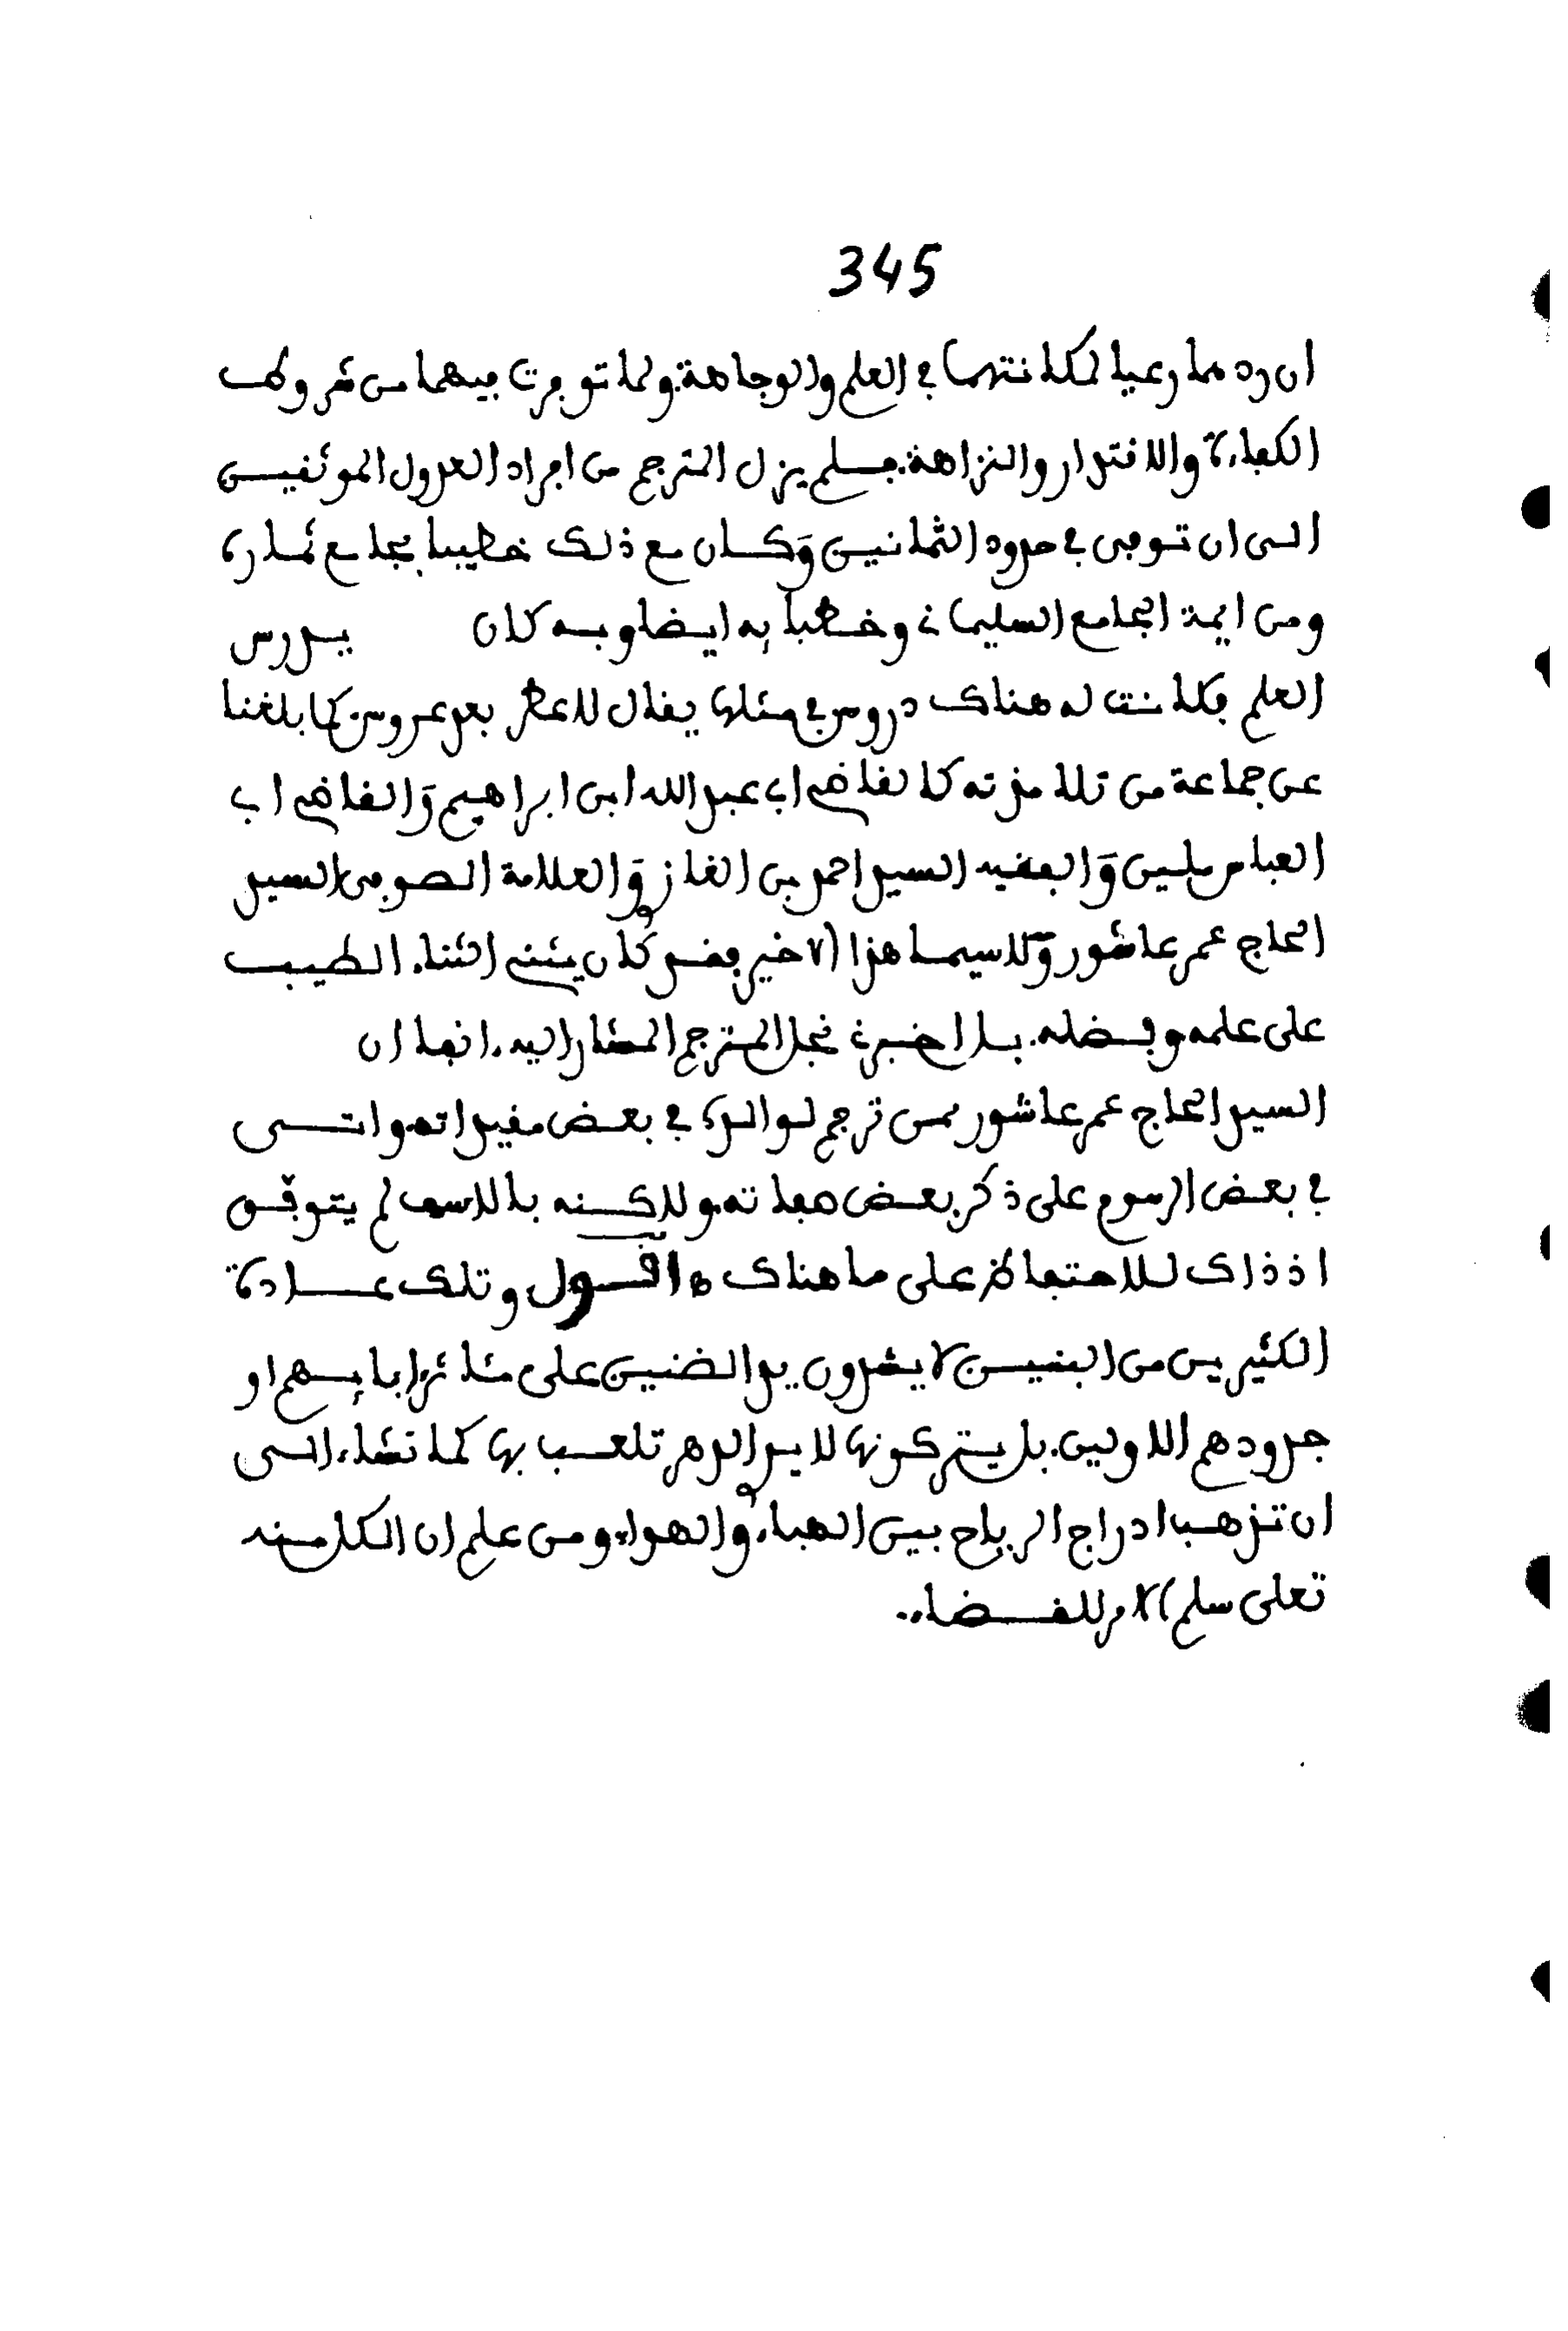 345
ان ردهما رعيا لمكانتهما في العلم والوجاهة ولما توفرت فيهما من شروط
الكفاءة والاقتدار والنزاهة. فلم يزل المترجم من افراد العدول الموثقين
الى ان توفي في حدود الثمانين وكان مع ذلك خطيبا بجامع
ومن ايمة الجامع السليماني وخطبا به ايضا وبه كان يدرس
العلم فكانت له هناك دروس في مثلها يقال لا عطر بعد عروس. كما بلغنا
عن جماعة من تلامذته كالقاضي ابي عبد الله ابن ابراهيم والقاضي ابي
العباس ملين والفقيه السيد احمد بن الغاز والعلامة الصوفي السيد
الحاج عمر عاشور ولا سيما هذا الاخير فقد كان يثني الثناء الطيب
على علمه وفضله. بل اخبرني نجل المترجم المشار اليه انفا ان
السيد الحاج عمر عاشور ممن ترجم لوالده في بعض مقيداته واتى
في بعض الرسوم على ذكر بعض صفاته ولاكنه بالاسف لم يتوفق
اذ ذاك للاحتفاظ على ما هناك ه اقول وتلك عادة
الكثيرين من البنين لا يشدون يد الضنين على مئاثر ابايهم او
جدودهم الاولين. بل يتركونها لايد الدهر تلعب بها كما تشاء الى
ان تذهب ادراج الرياح بين الهباء والهواء ومن علم ان الكل منه
تعلى سلم الامر للقضاء..